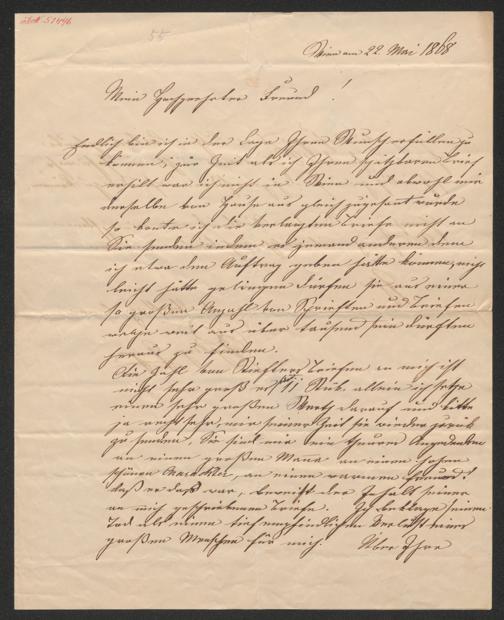 55
Wien am 22. Mai 1868
Mein Hochverehrter Freund!
Endlich bin ich in der Lage Ihren Wunsch erfüllen zu
können; zur Zeit als ich Ihren schätzbaren Brief
erhielt war ich nicht in Wien und obwohl mir
derselbe von Hause aus gleich zugesandt wurde
so konte ich die verlangten Briefe nicht an
Sie senden indem es jemand anderen dem
ich etwa den Auftrag geben hätte können, nicht
leicht hätte gelingen dürfen sie aus einer
so großen Anzahl von Schriften und Briefen
welche weit aus über tausend sein dürften
heraus zu finden.
Die Zahl von Stifters Briefen an mich ist
nicht sehr groß es 11 Stük. allein ich setze
einen sehr großen Werth darauf und bitte
ja recht sehr, mir seiner Zeit sie wieder zurück
zu senden. Sie sind mir ein theures Angedenken
an einen großen Mann an einen hohen
schönen Charackter, an einen warmen Freund!
daß er das war, beweist der Inhalt seiner
an mich geschriebenen Briefe. Ich beklage seinen
Tod als einen tiefempfindlichen Verlust eines
großen Menschen für mich. Über Ihre